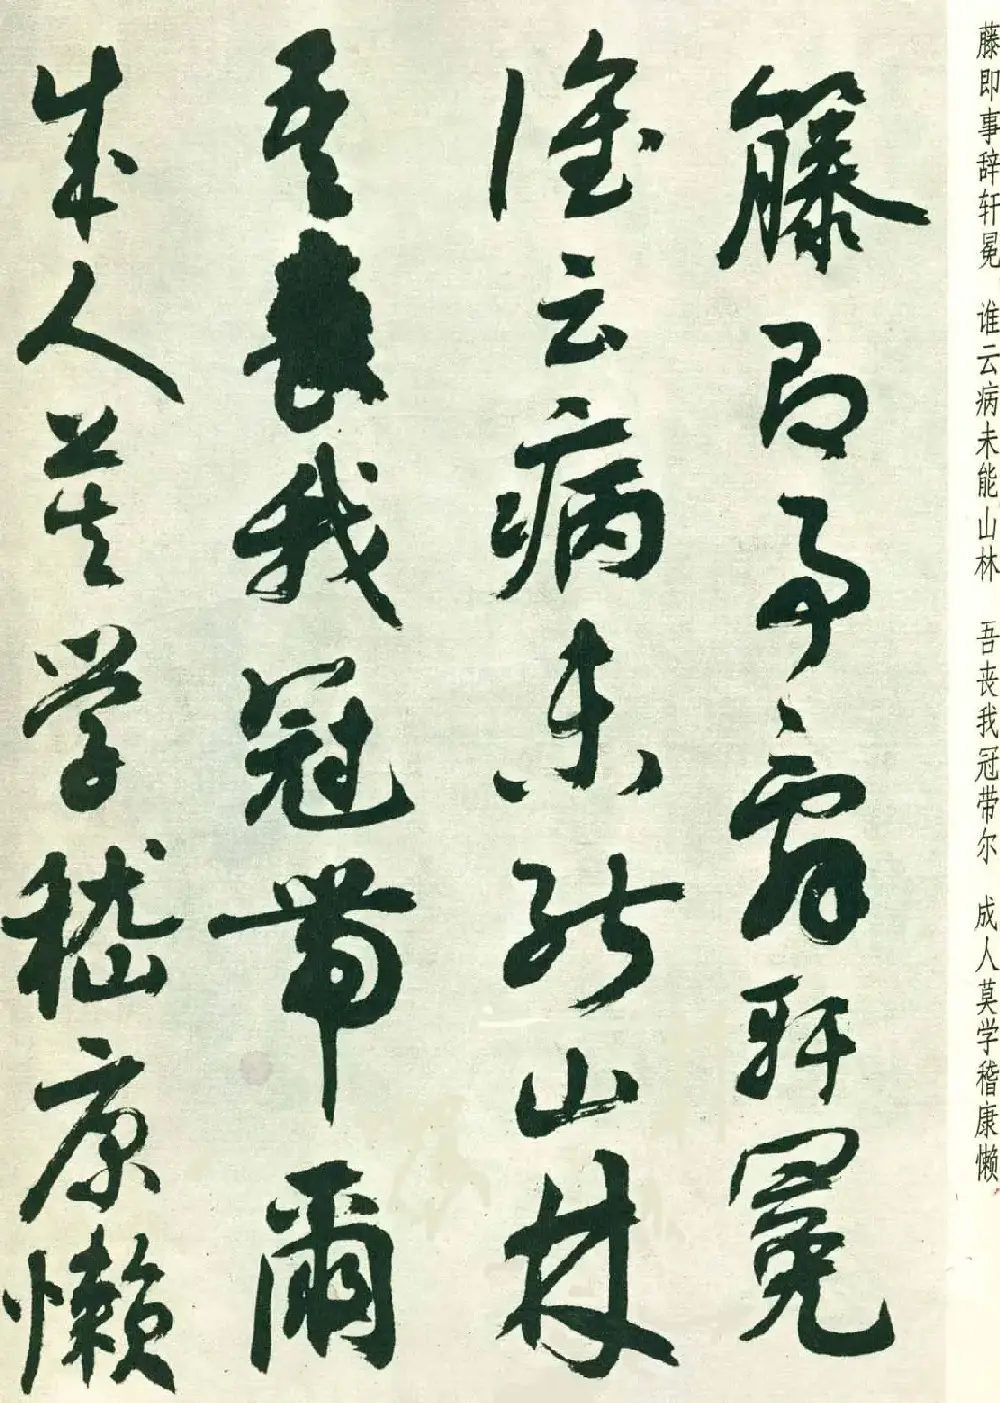 藤即事辞轩冕 谁云病未能山林 吾丧我冠带尔 成人莫学稽康懒
籐即事辭軒冕
誰云病未能山林
吾喪我冠帶爾
成人莫学嵇康懶